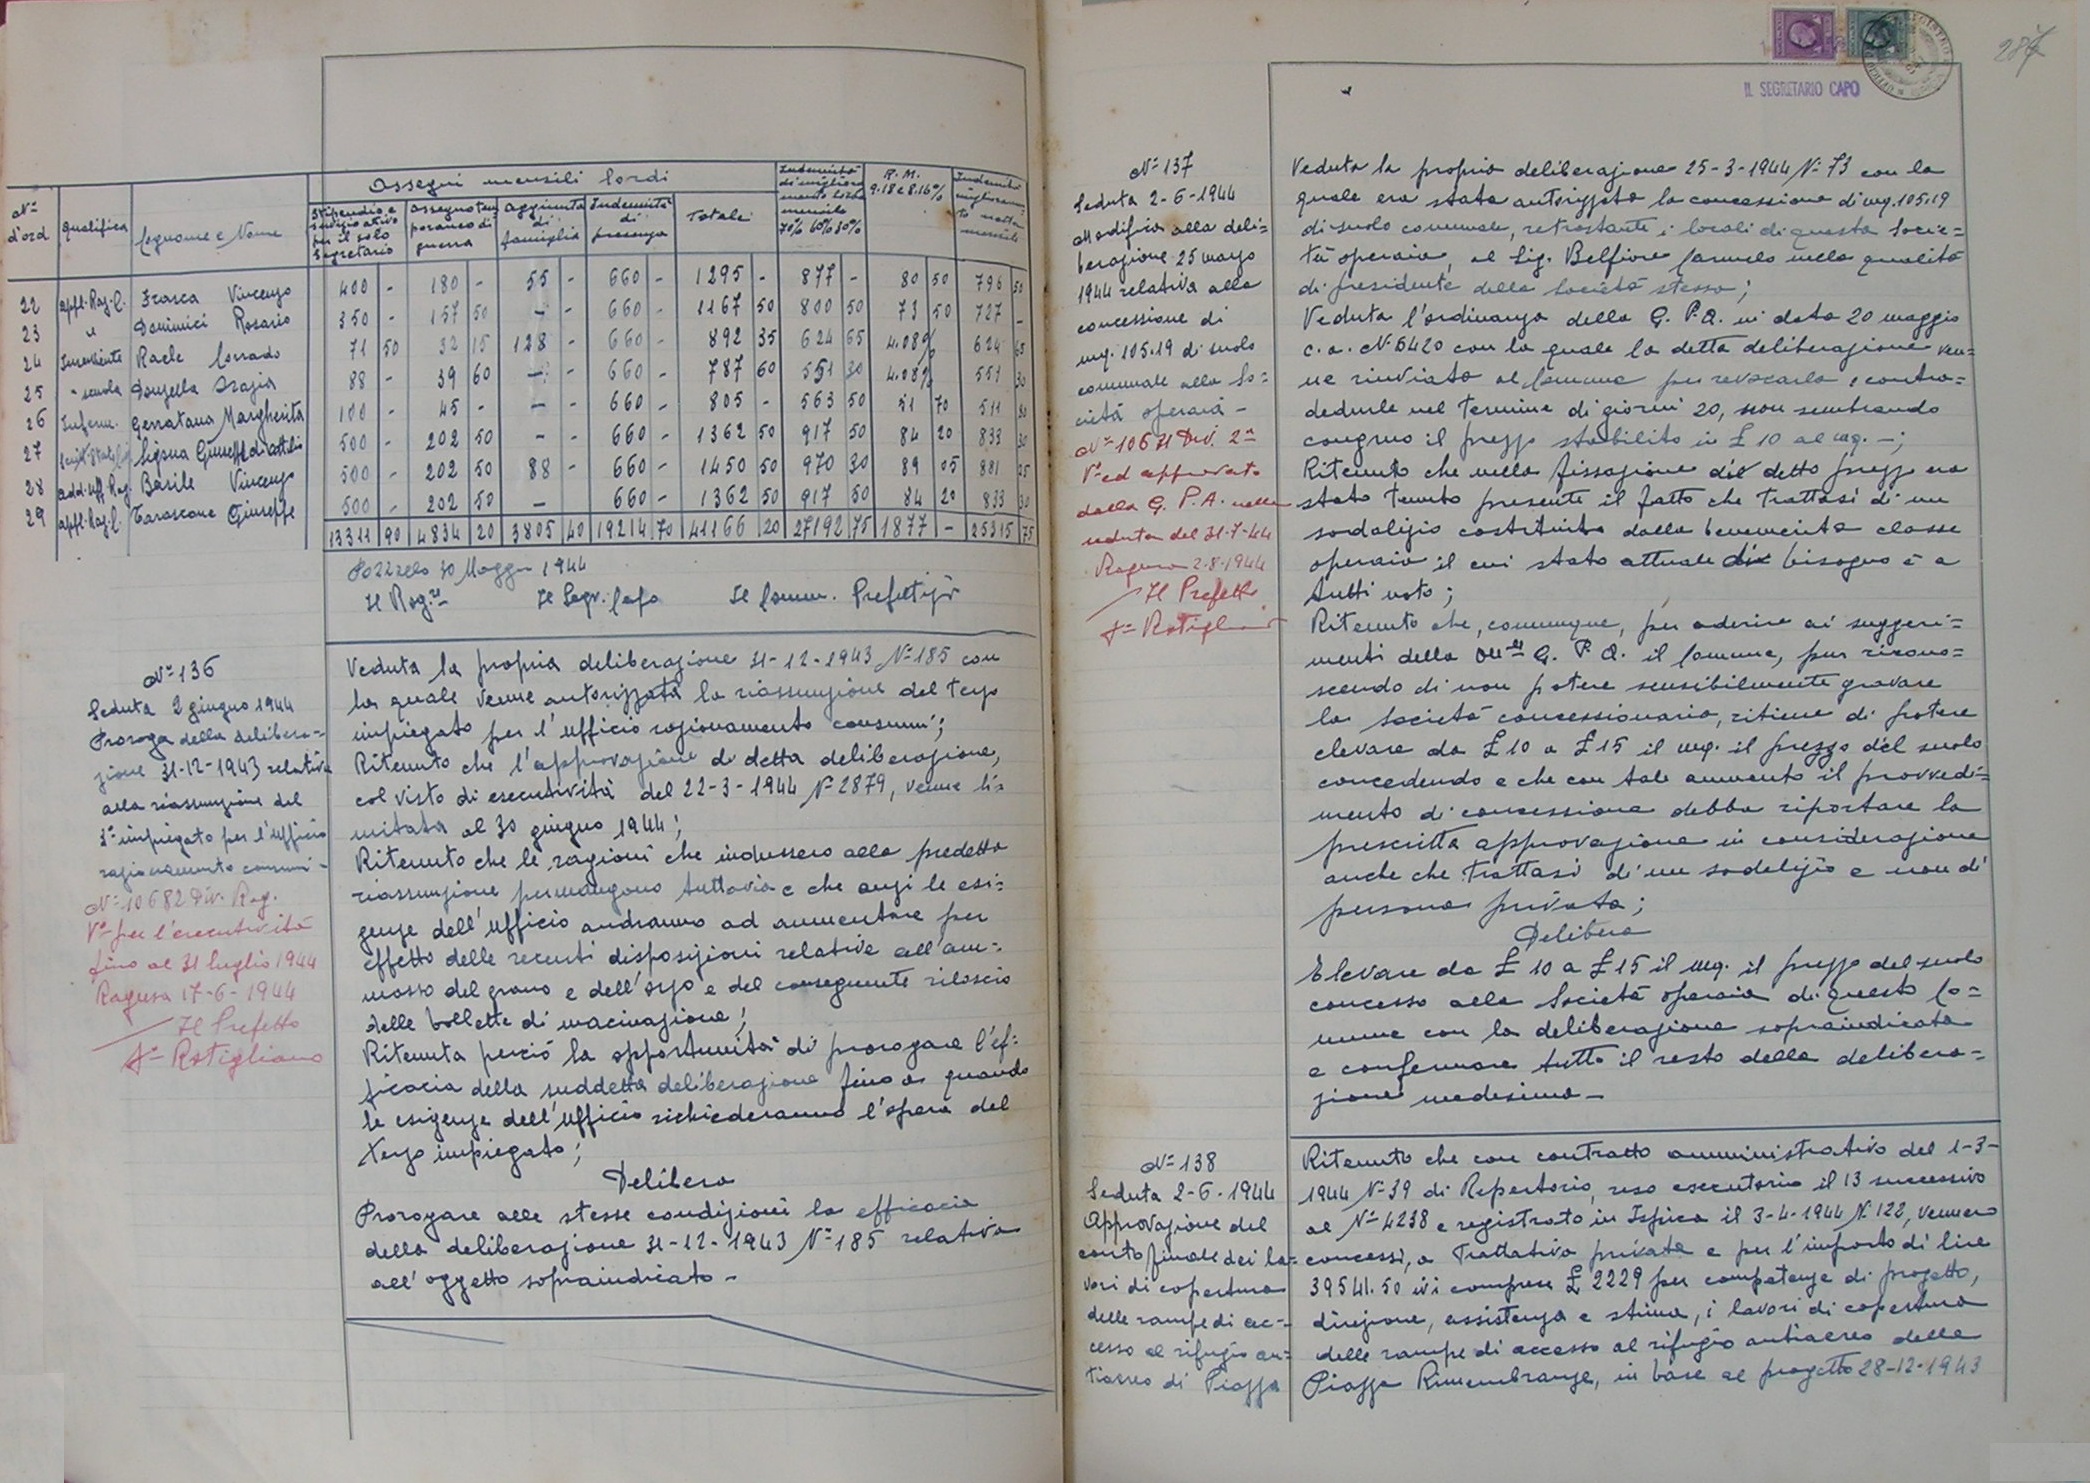 Assegni mensili lordi
N° d'ord | qualifica | Cognome e Nome | Stipendio e servizio attivo per il solo Segretario | Assegno temporaneo di guerra | Aggiunta di famiglia | Indennità di presenza | Totale | Indennità di miglioramento lorda mensile 70% 60% 80% | R.M. 9.18 e 8.16% | Indennità miglioramento netta mensile
22 appl. Rag. C. Frasca Vincenzo 400 - 180 - 55 - 660 - 1295 - 877 - 80 50 796 50
23 " Dominici Rosario 350 - 157 50 - - 660 - 1167 50 800 50 73 50 727 -
24 Inserviente Raele Corrado 71 50 32 15 128 - 660 - 892 35 624 65 4.08% 624 65
25 " scuola Donzella Grazia 88 - 39 60 - - 660 - 787 60 551 30 4.08% 551 30
26 Inferm. Gerratana Margherita 100 - 45 - - - 660 - 805 - 563 50 51 70 511 80
27 Ligana Giuseppe di Cattaldo 500 - 202 50 - - 660 - 1362 50 917 50 84 20 833 30
28 add. Uff. Rag. Basile Vincenzo 500 - 202 50 88 - 660 - 1450 50 970 30 89 05 881 25
29 appl. Rag. C. Tarascone Giuseppe 500 - 202 50 - 660 - 1362 50 917 50 84 20 833 30
13311 90 4834 20 3805 40 19214 70 41166 20 27192 75 1877 - 25315 75
Pozzallo 30 Maggio 1944
Il Rag.re Il Segr. Capo Il Comm. Prefettizio
N° 136
Seduta 2 giugno 1944
Proroga della delibera-
zione 31-12-1943 relativa
alla riassunzione del
3° impiegato per l'ufficio
razionamento consumi -
N° 10682 Div. Rag.
V° per l'esecutività
fino al 31 luglio 1944
Ragusa 17-6-1944
Il Prefetto
F° Rotigliano
Veduta la propria deliberazione 31-12-1943 N° 185 con
la quale venne autorizzata la riassunzione del terzo
impiegato per l'ufficio razionamento consumi;
Ritenuto che l'approvazione di detta deliberazione,
col visto di esecutività del 22-3-1944 N° 2879, venne li=
mitata al 30 giugno 1944;
Ritenuto che le ragioni che indussero alla predetta
riassunzione permangono tuttavia e che anzi le esi=
genze dell'ufficio andranno ad aumentare per
effetto delle recenti disposizioni relative all'am=
masso del grano e dell'orzo e del conseguente rilascio
delle bollette di macinazione;
Ritenuta perciò la opportunità di prorogare l'ef=
ficacia della suddetta deliberazione fino a quando
le esigenze dell'ufficio richiederanno l'opera del
terzo impiegato;
Delibera
Prorogare alle stesse condizioni la efficacia
della deliberazione 31-12-1943 N° 185 relativa
all'oggetto sopraindicato -
IL SEGRETARIO CAPO
N° 137
Seduta 2-6-1944
Modifica alla deli=
berazione 25 marzo
1944 relativa alla
concessione di
mq. 105.19 di suolo
comunale alla So=
cietà operaia -
N° 10631 Div. 2ª
V° ed approvato
dalla G. P. A. nella
seduta del 31-7-44
Ragusa 2-8-1944
Il Prefetto
F° Rotigliano
Veduta la propria deliberazione 25-3-1944 N° 73 con la
quale era stata autorizzata la concessione di mq. 105.19
di suolo comunale, retrostante i locali di questa Socie=
tà operaia, al Sig. Belfiore Carmelo nella qualità
di presidente della Società stessa;
Veduta l'ordinanza della G. P. A. in data 20 maggio
c. a. N° 6420 con la quale la detta deliberazione ven=
ne rinviata al Comune per revocarla o contro=
dedurle nel termine di giorni 20, non sembrando
congruo il prezzo stabilito in £ 10 al mq. -;
Ritenuto che nella fissazione del detto prezzo era
stato tenuto presente il fatto che trattasi di un
sodalizio costituito dalla benemerita classe
operaia il cui stato attuale di bisogno è a
tutti noto;
Ritenuto che, comunque, per aderire ai suggeri=
menti della On.le G. P. A. il Comune, pur ricono=
scendo di non potere sensibilmente gravare
la società concessionaria, ritiene di potere
elevare da £ 10 a £ 15 il mq. il prezzo del suolo
concedendo e che con tale aumento il provvedi=
mento di concessione debba riportare la
prescritta approvazione in considerazione
anche che trattasi di un sodalizio e non di
persona privata;
Delibera
Elevare da £ 10 a £ 15 il mq. il prezzo del suolo
concesso alla Società operaia di questo Co=
mune con la deliberazione sopraindicata
e confermare tutto il resto della delibera=
zione medesima -
N° 138
Seduta 2-6-1944
Approvazione del
conto finale dei la=
vori di copertura
delle rampe di ac=
cesso al rifugio an=
tiaereo di Piazza
Ritenuto che con contratto amministrativo del 1-3-
1944 N° 39 di Repertorio, reso esecutorio il 13 successivo
al N° 4238 e registrato in Ispica il 3-4-1944 N. 122, vennero
concessi, a trattativa privata e per l'importo di lire
39541.50 ivi comprese £ 2229 per competenze di progetto,
direzione, assistenza e stima, i lavori di copertura
delle rampe di accesso al rifugio antiaereo della
Piazza Rimembranze, in base al progetto 28-12-1943